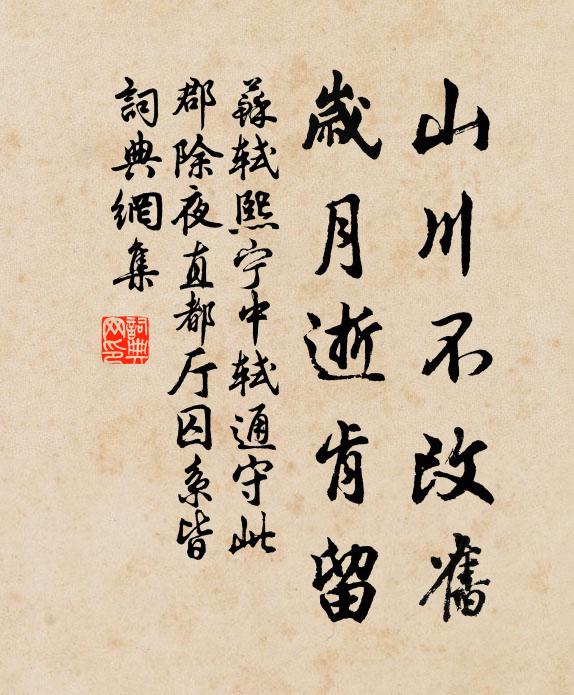 山川不改舊
歲月逝肯留
蘇軾熙宁中軾通守此
郡除夜直都厅囚系皆
詞典網集
詞典网印